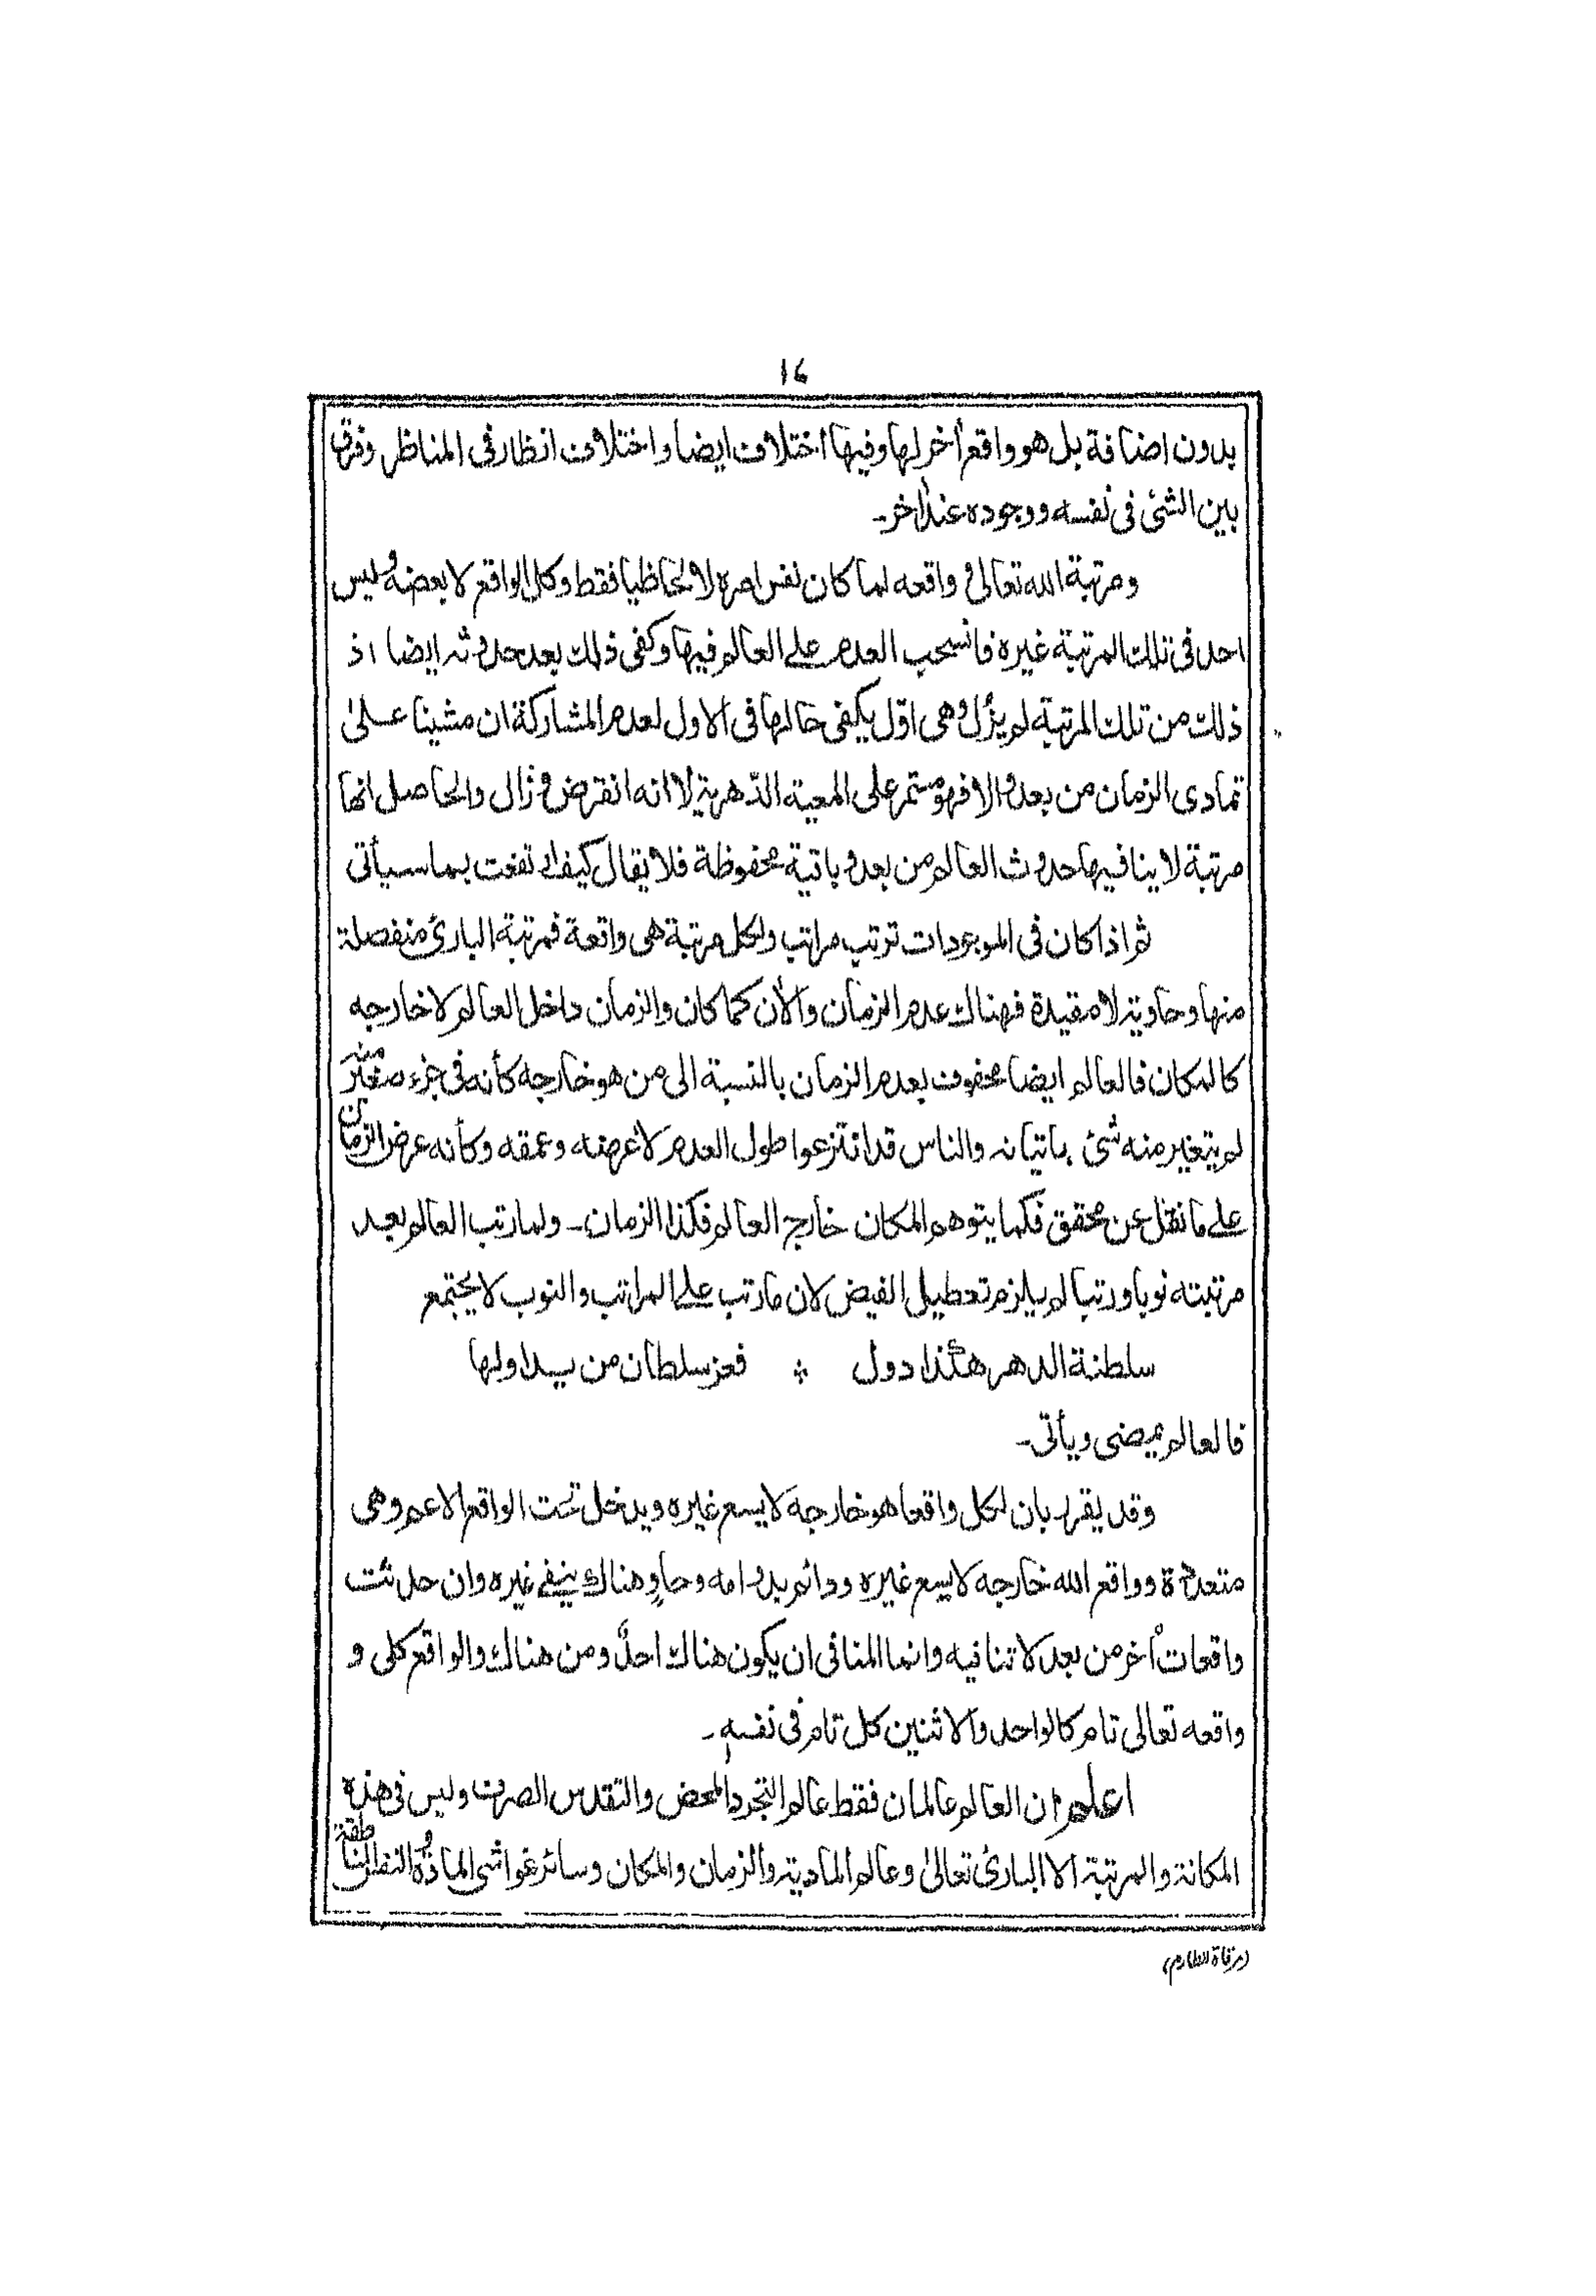 ١٦
بدون اضافة بل هو واقع أخر لها وفيها اختلاف ايضا واختلاف انظار فى المناظر وفرق
بين الشئ فى نفسه ووجوده عند أخر۔
ومرتبة الله تعالى و واقعه لما كان نفس امره لا لحاظيا فقط وكل الواقع لا بعضه وليس
احد فى تلك المرتبة غيره فانسحب العدم على العالم فيها وكفى ذلك بعد حدوثه ايضا اذ
ذلك من تلك المرتبة لم يزل وهى اوّل يكفى حالها فى الاول لعدم المشاركة ان مشينا على
تمادى الزمان من بعد والا فهو مستمر على المعية الدّهرية لا انه انقرض وزال والحاصل انها
مرتبة لا ينافيها حدوث العالم من بعد وباقية محفوظة فلا يقال كيف ارتفعت بما سيأتى
ثم اذا كان فى الموجودات ترتب مراتب ولكل مرتبة هى واقعة فمرتبة البارئ منفصلة
منها وحاوية لا مقيدة فهناك عدم الزمان والأن كما كان والزمان داخل العالم لا خارجه
كالمكان فالعالم ايضا محفوف بعدم الزمان بالنسبة الى من هو خارجه كأنه فى جزء صغير منه
لم يتغير منه شئ باتيانه والناس قد انتزعوا طول العدم لا عرضه وعمقه وكأنه عرض الزمان
على ما نقل عن محقق فكما يتوهم المكان خارج العالم فكذا الزمان۔ ولما رتب العالم بعد
مرتبته نوبا ورتبا لم يلزم تعطيل الفيض لان ما رتب على المراتب والنوب لا يجتمع
سلطنة الدهر هكذا دول ؞ فعز سلطان من يداولها
فالعالم يمضى ويأتى۔
وقد يقرر بان لكل واقعا هو خارجه لا يسع غيره ويدخل تحت الواقع الاعم وهى
متعددة وواقع الله خارجه لا يسع غيره ودائم بدوامه وحاوٍ هناك ينفى غيره وان حدثت
واقعات أخر من بعد لا تنافيه وانما المنافى ان يكون هناك احدٌ ومن هناك والواقع كلى و
واقعه تعالى تام كالواحد والاثنين كل تام فى نفسه۔
اعلم ان العالم عالمان فقط عالم التجرد المحض والتقدس الصرف وليس فى هذه
المكانة والمرتبة الا البارئ تعالى وعالم المادية والزمان والمكان وسائر غواشى المادة والنفس الناطقة
(مرقاة الطارم)